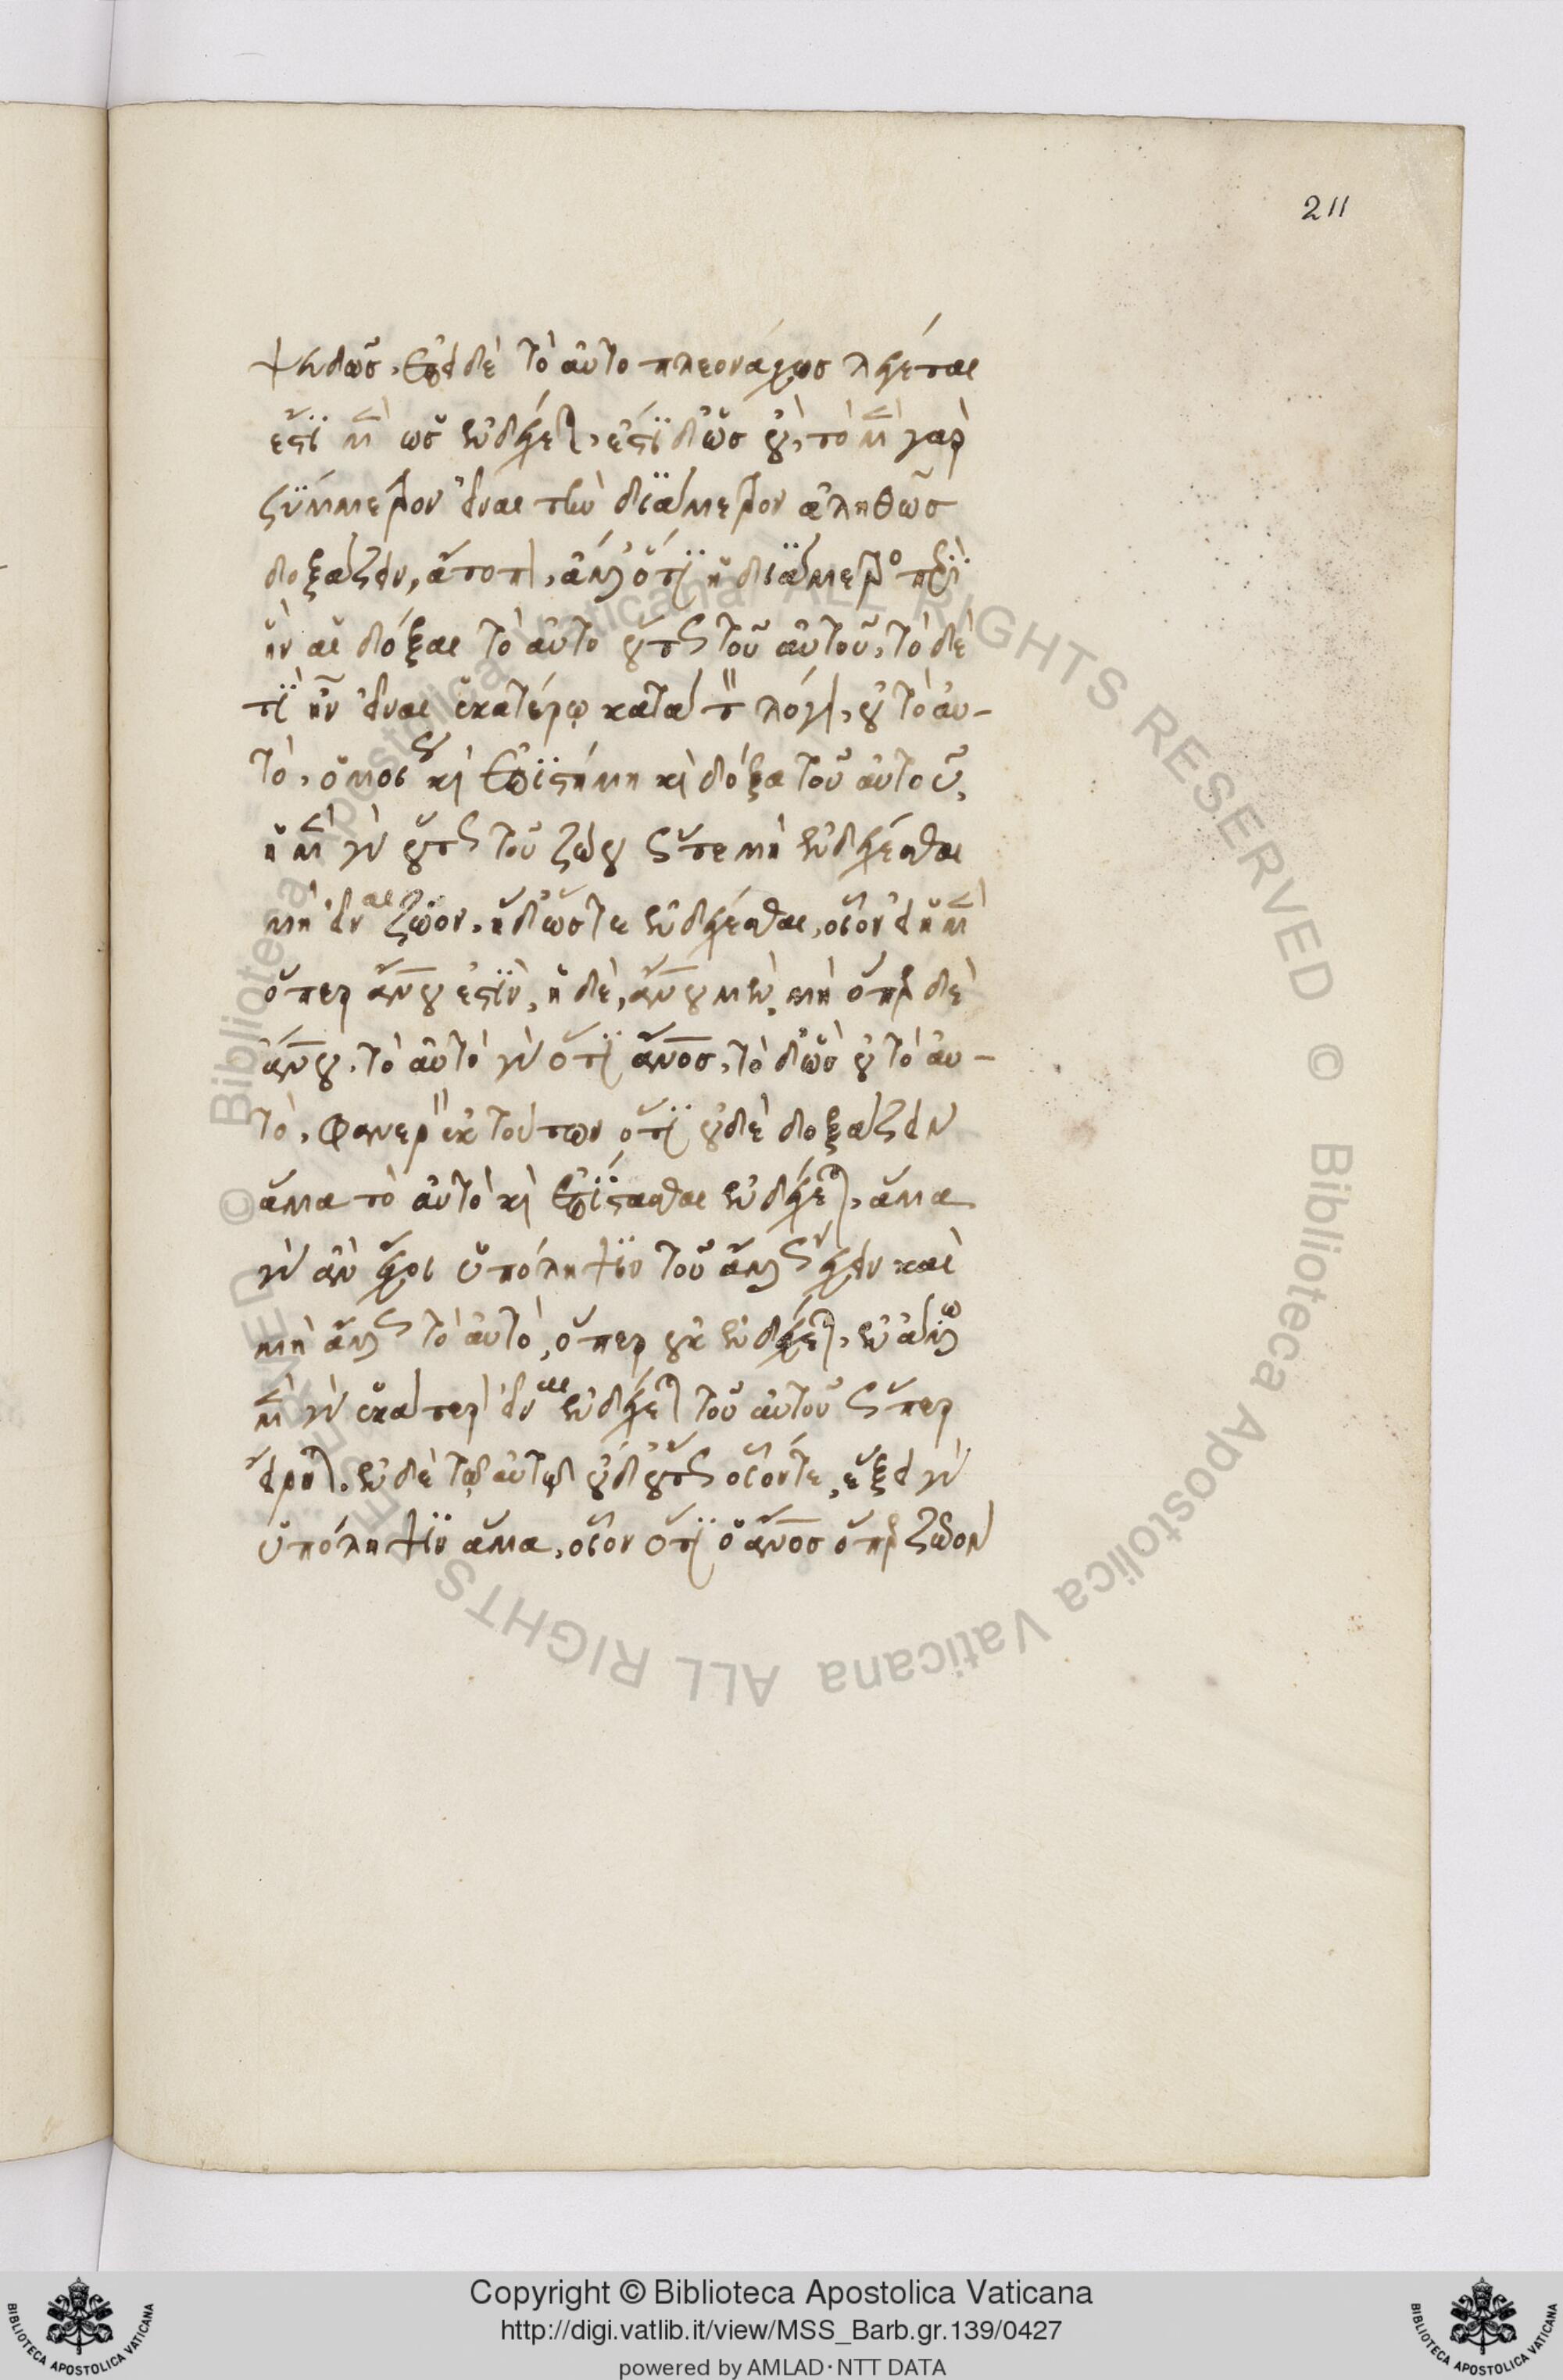 211
ψευδῶς. ἐπεὶ δὲ τὸ αὐτὸ πλεοναχῶς λέγεται
ἔστι μὲν ὡς ἐνδέχεται, ἔστι δ' ὡς οὔ, τὸ μὲν γὰρ
σύμμετρον εἶναι τὴν διάμετρον ἀληθῶς
δοξάζειν, ἄτοπον, ἀλλ' ὅτι ἡ διάμετρος περὶ
ἣν αἱ δόξαι τὸ αὐτὸ οὕτως τοῦ αὐτοῦ, τὸ δὲ
τί ἦν εἶναι ἑκατέρῳ κατὰ τὸν λόγον, οὐ τὸ αὐ-
τό, ὁμοίως καὶ ἐπιστήμη καὶ δόξα τοῦ αὐτοῦ,
ἡ μὲν γὰρ οὕτως τοῦ ζώου ὥστε μὴ ἐνδέχεσθαι
μὴ εἶναι ζῶον, ἡ δ' ὥστε ἐνδέχεσθαι, οἷον εἰ ἡ μὲν
ὅπερ ἀνου ἐστὶν, ἡ δὲ, ἀνου μὲν, μὴ ὅπερ δὲ
ἀνου. τὸ αὐτὸ γὰρ ὅτι ἄνος, τὸ δ' ὡς οὐ τὸ αὐ-
τό, φανερὸν ἐκ τούτων ὅτι οὐδὲ δοξάζειν
ἅμα τὸ αὐτὸ καὶ ἐπίστασθαι ἐνδέχεται, ἅμα
γὰρ ἂν ἔχοι ὑπόληψιν τοῦ ἄλλως ἔχειν καὶ
μὴ ἄλλως τὸ αὐτό, ὅπερ οὐκ ἐνδέχεται, ἐν ἄλλῳ
μὲν γὰρ ἑκάτερον εἶναι ἐνδέχεται τοῦ αὐτοῦ ὥσπερ
εἴρηται. ἐν δὲ τῷ αὐτῷ οὐδ' οὕτως οἷόντε, ἕξει γὰρ
ὑπόληψιν ἅμα, οἷον ὅτι ὁ ἄνος ὅπερ ζῶον
© Biblioteca Apostolica Vaticana ALL RIGHTS RESERVED © Biblioteca Apostolica Vaticana ALL RIGHTS RESERVED
Copyright © Biblioteca Apostolica Vaticana
http://digi.vatlib.it/view/MSS_Barb.gr.139/0427
powered by AMLAD·NTT DATA
BIBLIOTECA APOSTOLICA VATICANA
BIBLIOTECA APOSTOLICA VATICANA